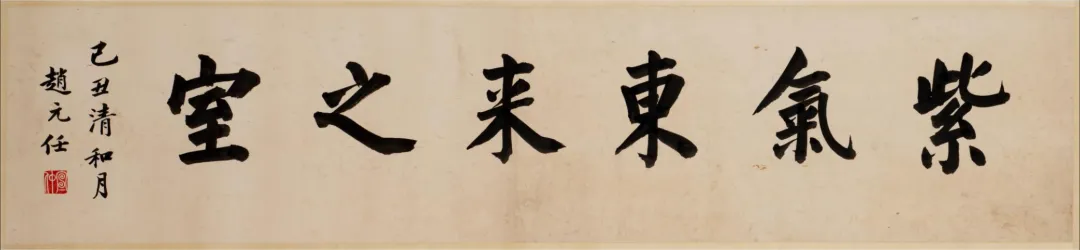 紫氣東来之室
己丑清和月
趙元任